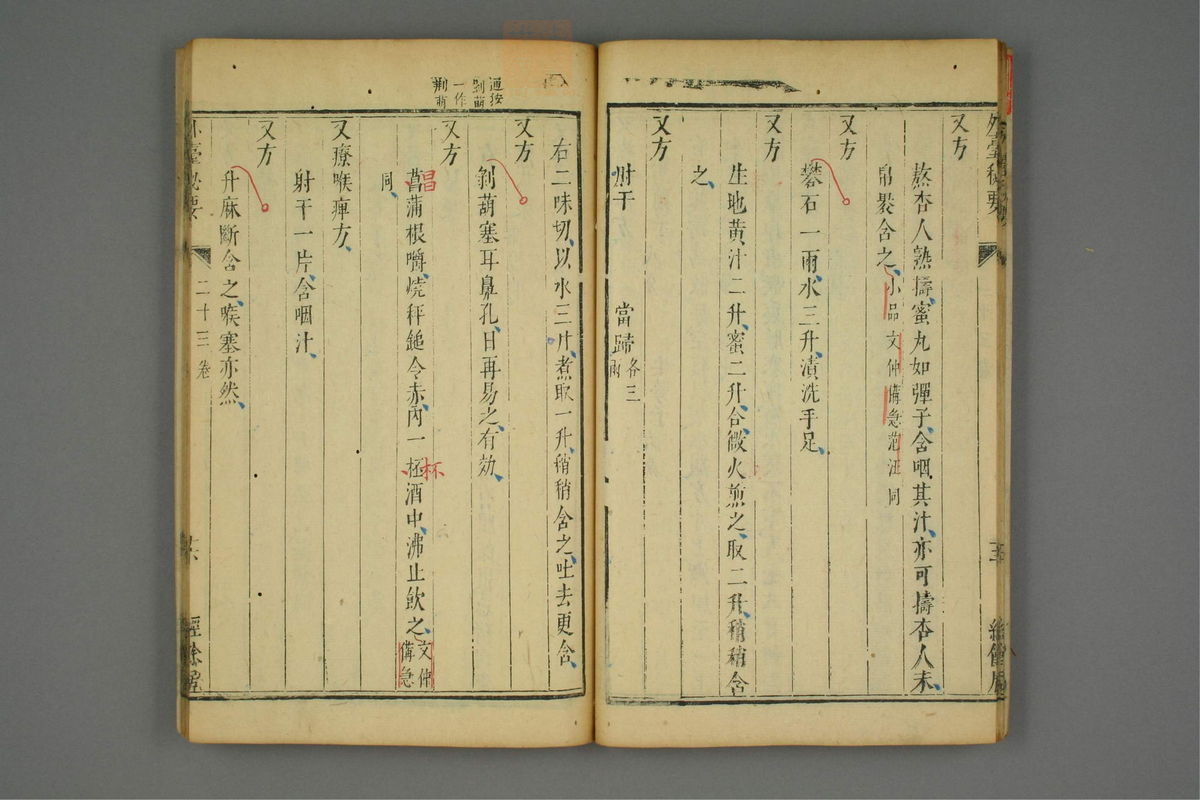 外臺秘要
又方
熬杏人熟擣蜜丸如彈子含咽其汁亦可擣杏人末
帛裹含之小品文仲備急范汪同
又方
礬石一兩水三升漬洗手足
又方
生地黃汁二升蜜二升合微火煎之取二升稍稍含
之
又方
射干 當歸各三兩
右二味切以水三升煮取一升稍稍含之吐去更含
又方
剝葫塞耳鼻孔日再易之有効
又方
菖蒲根嚼燒秤鎚令赤內一杯酒中沸止飲之文仲備急
同
又療喉痺方
射干一片含咽汁
又方
升麻斷含之喉塞亦然
外臺秘要
二十三卷
經餘居
一作
昌
杯